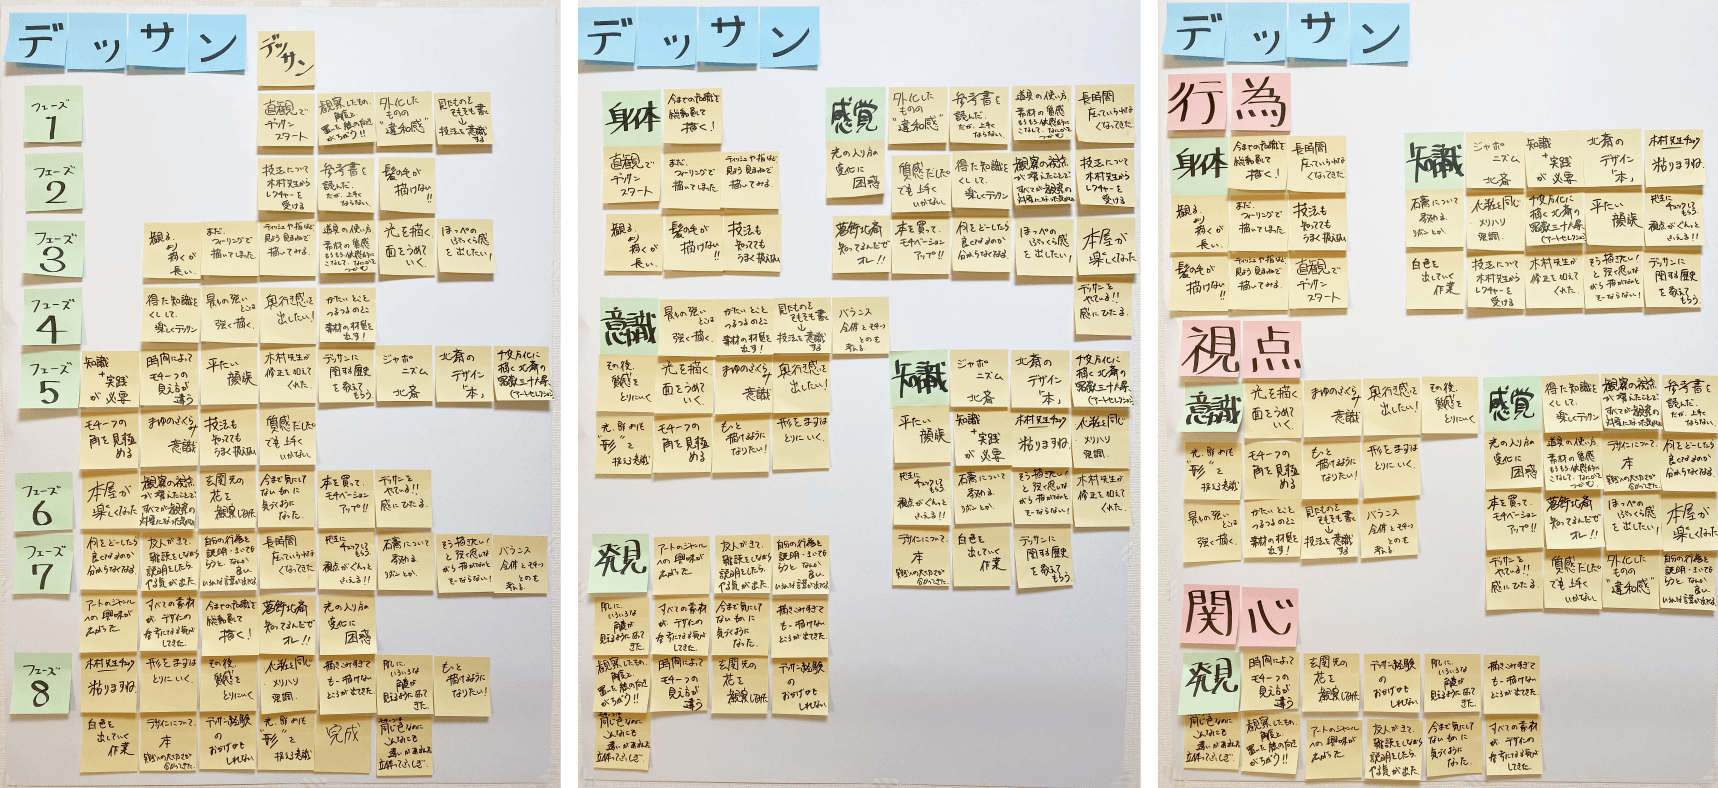 デッサン
デッサン
フェーズ
1
直観で
デッサン
スタート
観察したもの、
角度と
置いた時の向き
がちがう!!
外化した
ものの
“違和感”
見たものを
そもそも書く
↓
技法を意識
する
フェーズ
2
技法について
木村先生から
レクチャーを
受ける
参考書を
読んだ。
だが、上手く
ならない。
髪の毛が
描けない
!!
フェーズ
3
観る。
より
描くが
長い。
まだ、
フィーリングで
描いてしまった。
ティッシュや指など
見よう見まねで
描いてみる。
道具の使い方。
素材の質感
光を描く
面をうめて
いく。
ほっぺの
ぷっくら感
を出したい!
フェーズ
4
得た知識を
くしして、
楽しくデッサン
最も強い
ところは
強く描く。
奥行き感を
出したい!
かたいところ
つるつるのとこ
素材の材質を
出す!
フェーズ
5
知識
+
実践
が必要
時間によって
モチーフの
見え方が
違う
平たい
顔族
木村先生が
修正を加えて
くれた。
デッサンに
関する歴史
を教えて
もらう。
ジャポ
ニズム
北斎
北斎の
デザイン
「本」
千変万化に
描く北斎の
冨嶽三十六景
(アートセレクション)
モチーフの
角を見極
める
まゆのさくら
意識
技法も
知ってても
うまく扱えない
質感だしだ
でも上手く
いかない。
フェーズ
6
本屋が
楽しくなった
観察の視点
が増えたことで、
すべてが観察の
対象になった気がする
玄関先の
花を
観察しはじめた
今まで気にして
ない物に
気づくように
なった。
本を買って、
モチベーション
アップ!!
デッサンを
やっている!!
感にひたる。
フェーズ
7
何をどーしたら
良くなるのか
分からなくなる。
友人がきて、
雑談をしながら
説明したら、
やる気が出た。
自分の行為を
説明・書いても
らうと、なんか
良い
長時間
座っていられな
くなってきた
先生に
チェックしてもらう。
視点がぐんっと
さえる!!
石膏について
教わる。
リボンとか。
そう描きたい!
と強く思いな
がら描かないと
でーならない!
バランス
全体とモチーフ
とのも
考える。
アートのジャンル
への興味が
広がった。
すべての素材
が、デザインの
参考になる気が
してきた。
今までの知識を
総動員して
描く!
葛飾北斎
知ってるんだぜ
オレ!!
光の入り方の
変化に
困惑
フェーズ
8
木村先生チェック
粘りますね。
形をまずは
とりにいく。
その後、
質感を
とりにいく
化粧と同じ
メリハリ
強調。
描きこみすぎて
もー描けない
ところが出てきた。
用しに、
いろいろな
角度が
見えるようになって
きた。
もっと
描けるように
なりたい!
白色を
出していく
作業
デザインについて、
本
デッサン経験
の
おかげかも
しれない
光、影のにも
“形”を
捉える意識
完成
同じ色なのに
こんなにも
違いがあれる
立体ってふしぎ。
デッサン
身体
今までの知識を
総動員して
描く!
直観で
デッサン
スタート
まだ、
フィーリングで
描いてしまった。
ティッシュや指など
見よう見まねで
描いてみる。
観る。
より
描くが
長い。
髪の毛が
描けない
!!
技法も
知ってても
うまく扱えない
感覚
外化した
ものの
“違和感”
参考書を
読んだ。
だが、上手く
ならない。
道具の使い方。
素材の質感
長時間
座っていられな
くなってきた
光の入り方の
変化に
困惑
質感だしだ
でも上手く
いかない。
得た知識を
くしして、
楽しくデッサン
観察の視点
が増えたことで、
すべてが観察の
対象になった気がする
技法について
木村先生から
レクチャーを
受ける
葛飾北斎
知ってるんだぜ
オレ!!
本を買って、
モチベーション
アップ!!
何をどーしたら
良くなるのか
分からなくなる。
ほっぺの
ぷっくら感
を出したい!
本屋が
楽しくなった
デッサンを
やっている!!
感にひたる。
意識
最も強い
ところは
強く描く。
かたいところ
つるつるのとこ
素材の材質を
出す!
見たものを
そもそも書く
↓
技法を意識
する
バランス
全体とモチーフ
とのも
考える。
その後、
質感を
とりにいく
光を描く
面をうめて
いく。
まゆのさくら
意識
奥行き感を
出したい!
光、影のにも
“形”を
捉える意識
モチーフの
角を見極
める
もっと
描けるように
なりたい!
形をまずは
とりにいく。
知識
ジャポ
ニズム
北斎
北斎の
デザイン
「本」
千変万化に
描く北斎の
冨嶽三十六景
(アートセレクション)
平たい
顔族
知識
+
実践
が必要
木村先生チェック
粘りますね。
化粧と同じ
メリハリ
強調。
先生に
チェックしてもらう。
視点がぐんっと
さえる!!
石膏について
教わる。
リボンとか。
そう描きたい!
と強く思いな
がら描かないと
でーならない!
木村先生が
修正を加えて
くれた。
デザインについて、
本
白色を
出していく
作業
デッサンに
関する歴史
を教えて
もらう。
発見
アートのジャンル
への興味が
広がった。
友人がきて、
雑談をしながら
説明したら、
やる気が出た。
自分の行為を
説明・書いても
らうと、なんか
良い
用しに、
いろいろな
角度が
見えるようになって
きた。
すべての素材
が、デザインの
参考になる気が
してきた。
今まで気にして
ない物に
気づくように
なった。
描きこみすぎて
もー描けない
ところが出てきた。
観察したもの、
角度と
置いた時の向き
がちがう!!
時間によって
モチーフの
見え方が
違う
玄関先の
花を
観察しはじめた
デッサン経験
の
おかげかも
しれない
同じ色なのに
こんなにも
違いがあれる
立体ってふしぎ。
デッサン
行為
身体
今までの知識を
総動員して
描く!
長時間
座っていられな
くなってきた
観る。
より
描くが
長い。
まだ、
フィーリングで
描いてしまった。
技法も
知ってても
うまく扱えない
髪の毛が
描けない
!!
ティッシュや指など
見よう見まねで
描いてみる。
直観で
デッサン
スタート
知識
ジャポ
ニズム
北斎
知識
+
実践
が必要
北斎の
デザイン
「本」
木村先生チェック
粘りますね。
石膏について
教わる。
リボンとか。
化粧と同じ
メリハリ
強調。
千変万化に
描く北斎の
冨嶽三十六景
(アートセレクション)
平たい
顔族
先生に
チェックしてもらう。
視点がぐんっと
さえる!!
白色を
出していく
作業
技法について
木村先生から
レクチャーを
受ける
木村先生が
修正を加えて
くれた。
そう描きたい!
と強く思いな
がら描かないと
でーならない!
デッサンに
関する歴史
を教えて
もらう。
視点
意識
光を描く
面をうめて
いく。
まゆのさくら
意識
奥行き感を
出したい!
その後、
質感を
とりにいく
光、影のにも
“形”を
捉える意識
モチーフの
角を見極
める
もっと
描けるように
なりたい!
形をまずは
とりにいく。
最も強い
ところは
強く描く。
かたいところ
つるつるのとこ
素材の材質を
出す!
見たものを
そもそも書く
↓
技法を意識
する
バランス
全体とモチーフ
とのも
考える。
感覚
得た知識を
くしして、
楽しくデッサン
観察の視点
が増えたことで、
すべてが観察の
対象になった気がする
参考書を
読んだ。
だが、上手く
ならない。
光の入り方の
変化に
困惑
道具の使い方。
素材の質感
デザインについて、
本
何をどーしたら
良くなるのか
分からなくなる。
本を買って、
モチベーション
アップ!!
葛飾北斎
知ってるんだぜ
オレ!!
ほっぺの
ぷっくら感
を出したい!
本屋が
楽しくなった
デッサンを
やっている!!
感にひたる。
質感だしだ
でも上手く
いかない。
外化した
ものの
“違和感”
自分の行為を
説明・書いても
らうと、なんか
良い
関心
発見
時間によって
モチーフの
見え方が
違う
玄関先の
花を
観察しはじめた
デッサン経験
の
おかげかも
しれない
用しに、
いろいろな
角度が
見えるようになって
きた。
描きこみすぎて
もー描けない
ところが出てきた。
同じ色なのに
こんなにも
違いがあれる
立体ってふしぎ。
観察したもの、
角度と
置いた時の向き
がちがう!!
アートのジャンル
への興味が
広がった。
友人がきて、
雑談をしながら
説明したら、
やる気が出た。
今まで気にして
ない物に
気づくように
なった。
すべての素材
が、デザインの
参考になる気が
してきた。